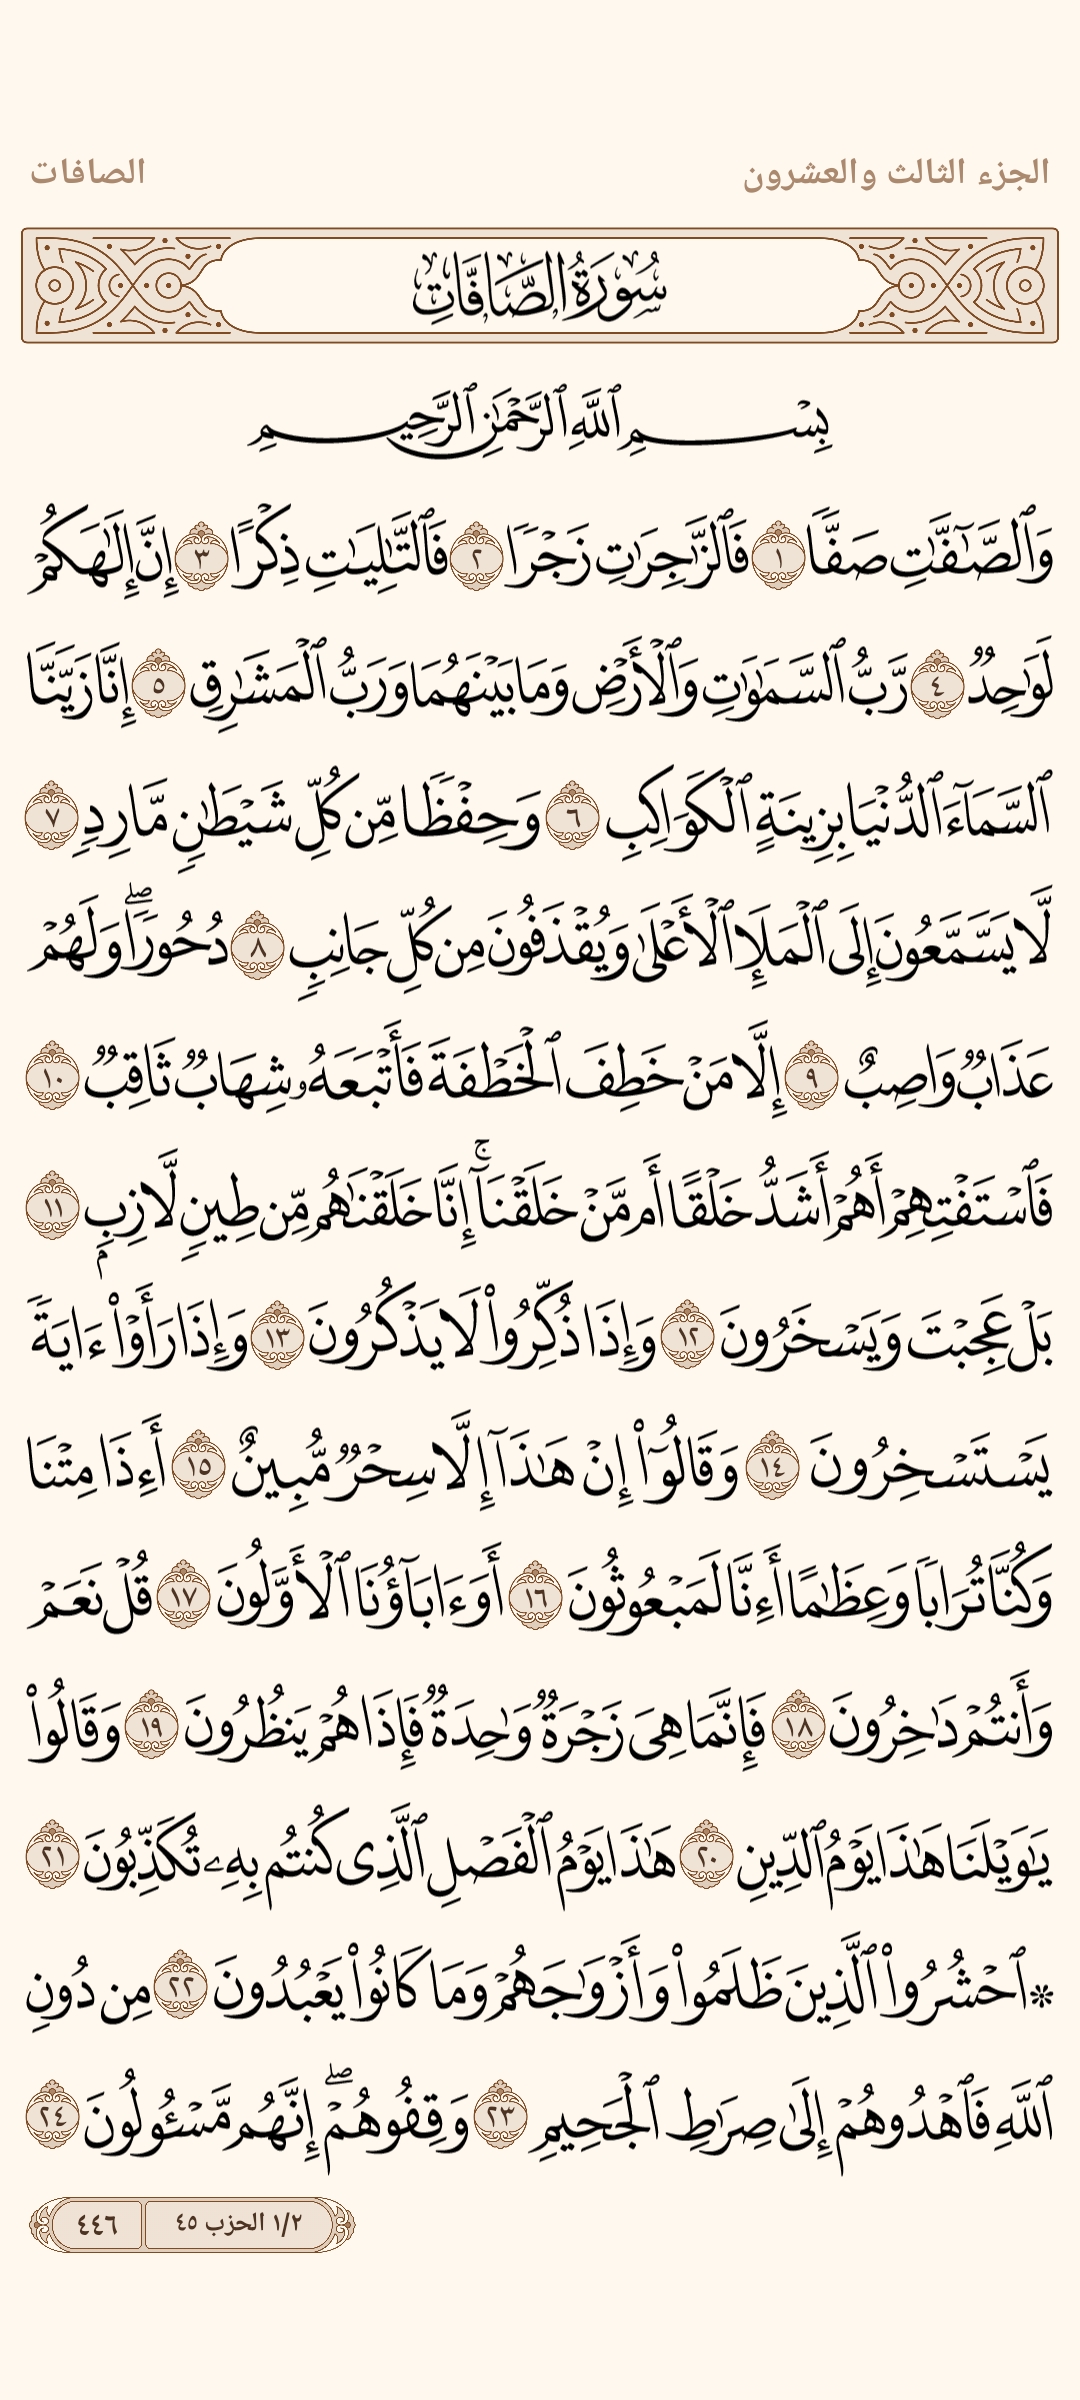 الجزء الثالث والعشرون
الصافات
سُورَةُ الصَّافَّاتِ
بِسْمِ ٱللَّهِ ٱلرَّحْمَٰنِ ٱلرَّحِيمِ
وَٱلصَّٰٓفَّٰتِ صَفّٗا ١ فَٱلزَّٰجِرَٰتِ زَجۡرٗا ٢ فَٱلتَّٰلِيَٰتِ ذِكۡرًا ٣ إِنَّ إِلَٰهَكُمۡ
لَوَٰحِدٞ ٤ رَّبُّ ٱلسَّمَٰوَٰتِ وَٱلۡأَرۡضِ وَمَا بَيۡنَهُمَا وَرَبُّ ٱلۡمَشَٰرِقِ ٥ إِنَّا زَيَّنَّا
ٱلسَّمَآءَ ٱلدُّنۡيَا بِزِينَةٍ ٱلۡكَوَاكِبِ ٦ وَحِفۡظٗا مِّن كُلِّ شَيۡطَٰنٖ مَّارِدٖ ٧
لَّا يَسَّمَّعُونَ إِلَى ٱلۡمَلَإِ ٱلۡأَعۡلَىٰ وَيُقۡذَفُونَ مِن كُلِّ جَانِبٖ ٨ دُحُورٗاۖ وَلَهُمۡ
عَذَابٞ وَاصِبٌ ٩ إِلَّا مَنۡ خَطِفَ ٱلۡخَطۡفَةَ فَأَتۡبَعَهُۥ شِهَابٞ ثَاقِبٞ ١٠
فَٱسۡتَفۡتِهِمۡ أَهُمۡ أَشَدُّ خَلۡقًا أَم مَّنۡ خَلَقۡنَآۚ إِنَّا خَلَقۡنَٰهُم مِّن طِينٖ لَّازِبِۭ ١١
بَلۡ عَجِبۡتَ وَيَسۡخَرُونَ ١٢ وَإِذَا ذُكِّرُواْ لَا يَذۡكُرُونَ ١٣ وَإِذَا رَأَوۡاْ ءَايَةٗ
يَسۡتَسۡخِرُونَ ١٤ وَقَالُوٓاْ إِنۡ هَٰذَآ إِلَّا سِحۡرٞ مُّبِينٌ ١٥ أَءِذَا مِتۡنَا
وَكُنَّا تُرَابٗا وَعِظَٰمًا أَءِنَّا لَمَبۡعُوثُونَ ١٦ أَوَءَابَآؤُنَا ٱلۡأَوَّلُونَ ١٧ قُلۡ نَعَمۡ
وَأَنتُمۡ دَٰخِرُونَ ١٨ فَإِنَّمَا هِيَ زَجۡرَةٞ وَٰحِدَةٞ فَإِذَا هُمۡ يَنظُرُونَ ١٩ وَقَالُواْ
يَٰوَيۡلَنَا هَٰذَا يَوۡمُ ٱلدِّينِ ٢٠ هَٰذَا يَوۡمُ ٱلۡفَصۡلِ ٱلَّذِي كُنتُم بِهِۦ تُكَذِّبُونَ ٢١
۞ ٱحۡشُرُواْ ٱلَّذِينَ ظَلَمُواْ وَأَزۡوَٰجَهُمۡ وَمَا كَانُواْ يَعۡبُدُونَ ٢٢ مِن دُونِ
ٱللَّهِ فَٱهۡدُوهُمۡ إِلَىٰ صِرَٰطِ ٱلۡجَحِيمِ ٢٣ وَقِفُوهُمۡۖ إِنَّهُم مَّسۡـُٔولُونَ ٢٤
١/٢ الحزب ٤٥
٤٤٦